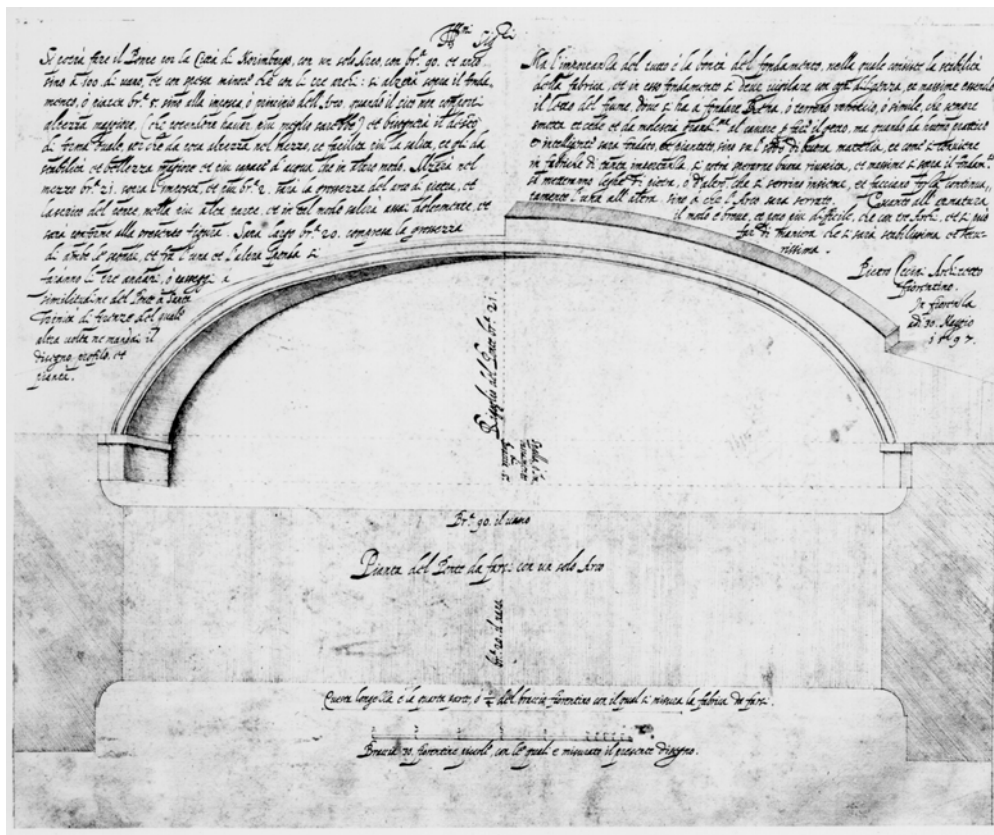 Si potrà fare il Ponte con la Città di Norimbergo, con un solo Arco, con br.ª 90. et anco
sino a 100 di uano, et con spesa minore che con li tre archi: si alzerà sopra il fonda-
mento, ò piazza br.ª 5 sino alla imposta, ò principio dell'Arco, quando il sito non comporti
altezza maggiore, (che potendone hauer più meglio sarebbe) et bisognerà il
di forma Ouale, per che da poca altezza nel mezzo, et facilita più la salita, et gli da
stabilità et bellezza magiore et più capace d'acqua, che in altro modo. Alzerà nel
mezzo br.ª 21. sopra l'imposta, et più br.ª 2. sarà la grossezza del arco di pietra, et
lastrico del ponte, nella più alta parte, et in tal modo salirà assai dolcemente, et
sarà conforme alla presente figura. Sarà largo br.ª 20. compresa la grossezza
di ambo le sponde, et fra l'una et l'altra sponda si
faranno li tre andari, ò passeggi a
similitudine del Ponte a Santa
Trinita di firenze del quale
altra uolta ne mandai il
disegno, profilo, et
pianta.
Ma l'importanza del tutto è la bontà del fondamento, nella quale consiste la stabilità
della fabrica, et in esso fondamento si deue usar ogni diligenza, et massime essendo
il letto del fiume, doue si ha a fondare ò terreno ò simile, che sempre
et da molestia al cauare, ma quando da huomo prattico
et intelligente sarà fondato, et piantato, sino su'l sodo di buona materia, et come si conuiene
in fabriche di tanta importanza, si potrà sperarne buona riuscita, et massime si sopra il fondam.to
si metteranno leghe di pietra, ò d'altro, che si serrino insieme, et facciano continua-
tamente l'una all'altra, sino a che l'Arco sarà serrato. Quanto all'armatura
il modo è breue, et poco più difficile, che con tre Archi, et si può
far di maniera che si sarà stabilissima, et
rissima.
Pietro Architetto
fiorentino.
In fiorenza
adi 30. Maggio
1597.
del Ponte br.ª 21.
Br.ª 90. il uano
Pianta del Ponte da farsi con un solo Arco
br.ª 20. il uano
Questa longezza è la quarta parte, ò ¼ del braccio fiorentino con il qual si misura la fabrica da farsi.
Braccia 30. fiorentine piccole, con le quali è misurato il presente disegno.